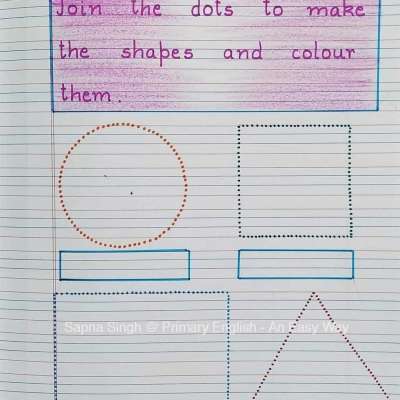 Join the dots to make
the shapes and colour
them.
Sapna Singh @ Primary English - An Easy Way